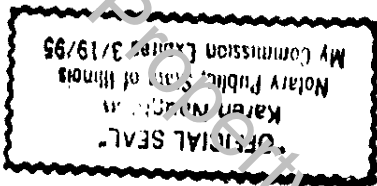 "OFFICIAL SEAL"
Karen
Notary Public, State of Illinois
My Commission Expires 3/19/95
Property